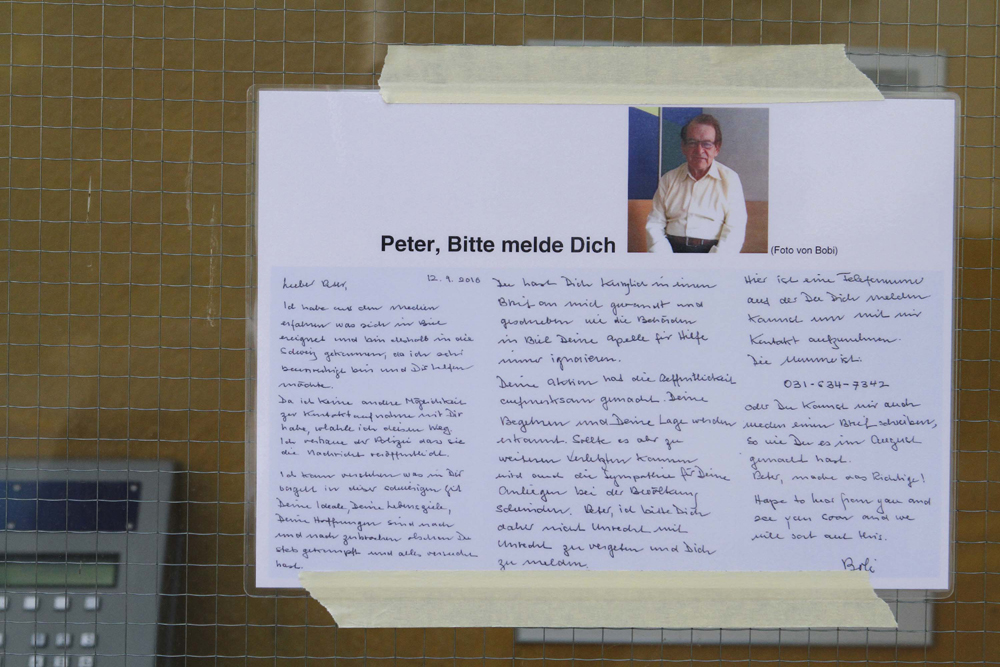 Peter, Bitte melde Dich
(Foto von Bobi)
Lieber Peter, 12. 9. 2010
Ich habe aus den Medien
erfahren was sich in Biel
ereignet und bin deshalb in die
Schweiz gekommen, da ich sehr
beunruhigt bin und Dir helfen
möchte.
Da ich keine andere Möglichkeit
zur Kontaktaufnahme mit Dir
habe, wähle ich diesen Weg.
Ich vertraue der Polizei dass sie
die Nachricht veröffentlicht.
Ich kann verstehen was in Dir
vorgeht in dieser schwierigen Zeit
Deine Ideale, Deine Lebensziele,
Deine Hoffnungen sind nach
und nach zerbrochen obschon Du
stets gekämpft und alles versucht
hast.
Du hast Dich kürzlich in einem
Brief an mich gewandt und
geschrieben wie die Behörden
in Biel Deine Apelle für Hilfe
immer ignorieren.
Deine Aktion hat die Oeffentlichkeit
aufmerksam gemacht. Deine
Begehren und Deine Lage werden
erkannt. Sollte es aber zu
weiteren Verletzten kommen
wird auch die Sympathie für Deine
Anliegen bei der Bevölkerung
schwinden. Peter, ich bitte Dich
daher nicht Unrecht mit
Unrecht zu vergelten und Dich
zu melden.
Hier ist eine Telefonnummer
auf der Du Dich melden
kannst um mit mir
Kontakt aufzunehmen.
Die Nummer ist:
031-634-7342
oder Du kannst mir auch
wieder einen Brief schreiben,
so wie Du es im August
gemacht hast.
Peter, mache das Richtige!
Hope to hear from you and
see you soon and we
will sort out this.
Bobi